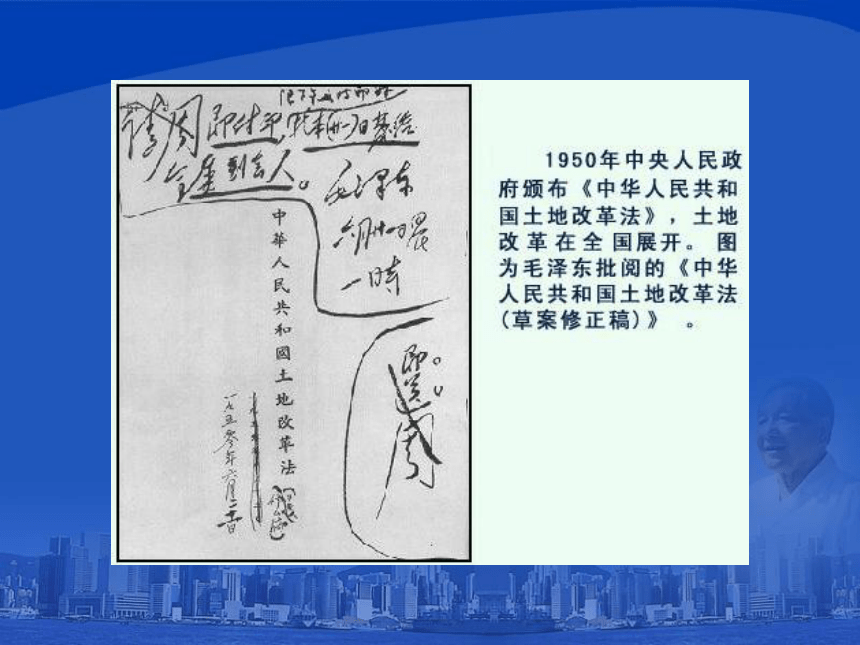 请周即付印,
到会人。
毛泽东
一時
中華人民共和國土地改革法
一九五零年六月二十一日
即送周
1950年中央人民政
府颁布《中华人民共和
国土地改革法》，土地
改革在全国展开。图
为毛泽东批阅的《中华
人民共和国土地改革法
(草案修正稿)》 。